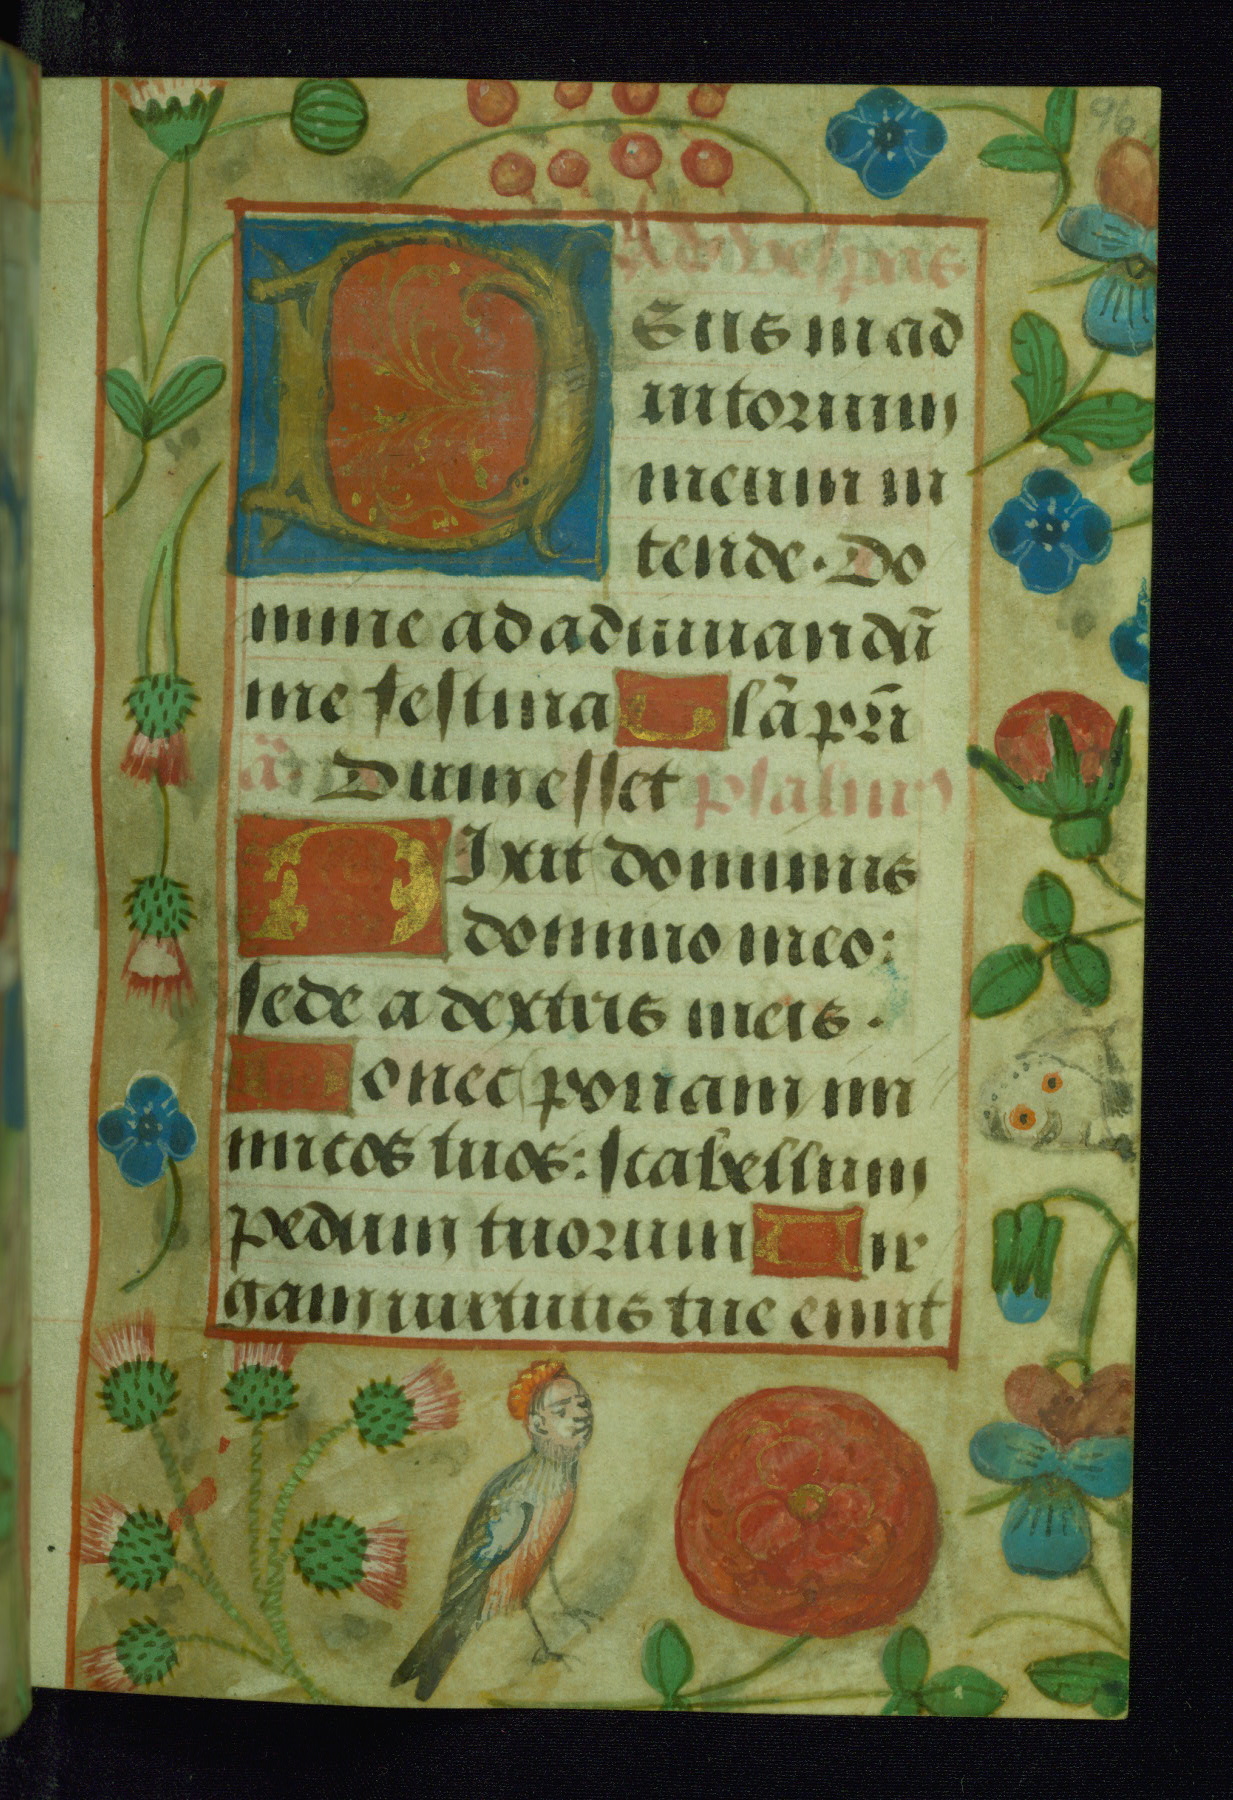 96
Ad vesperas
DEus in ad
iutorium
meum in
tende. Do
mine ad adiuuandū
me festina Glā pr̄i
añ. Dum esset psalm
DIxit dominus
domino meo:
sede a dextris meis.
Donec ponam ini
micos tuos: scabellum
pedum tuorum Uir
gam uirtutis tue emit